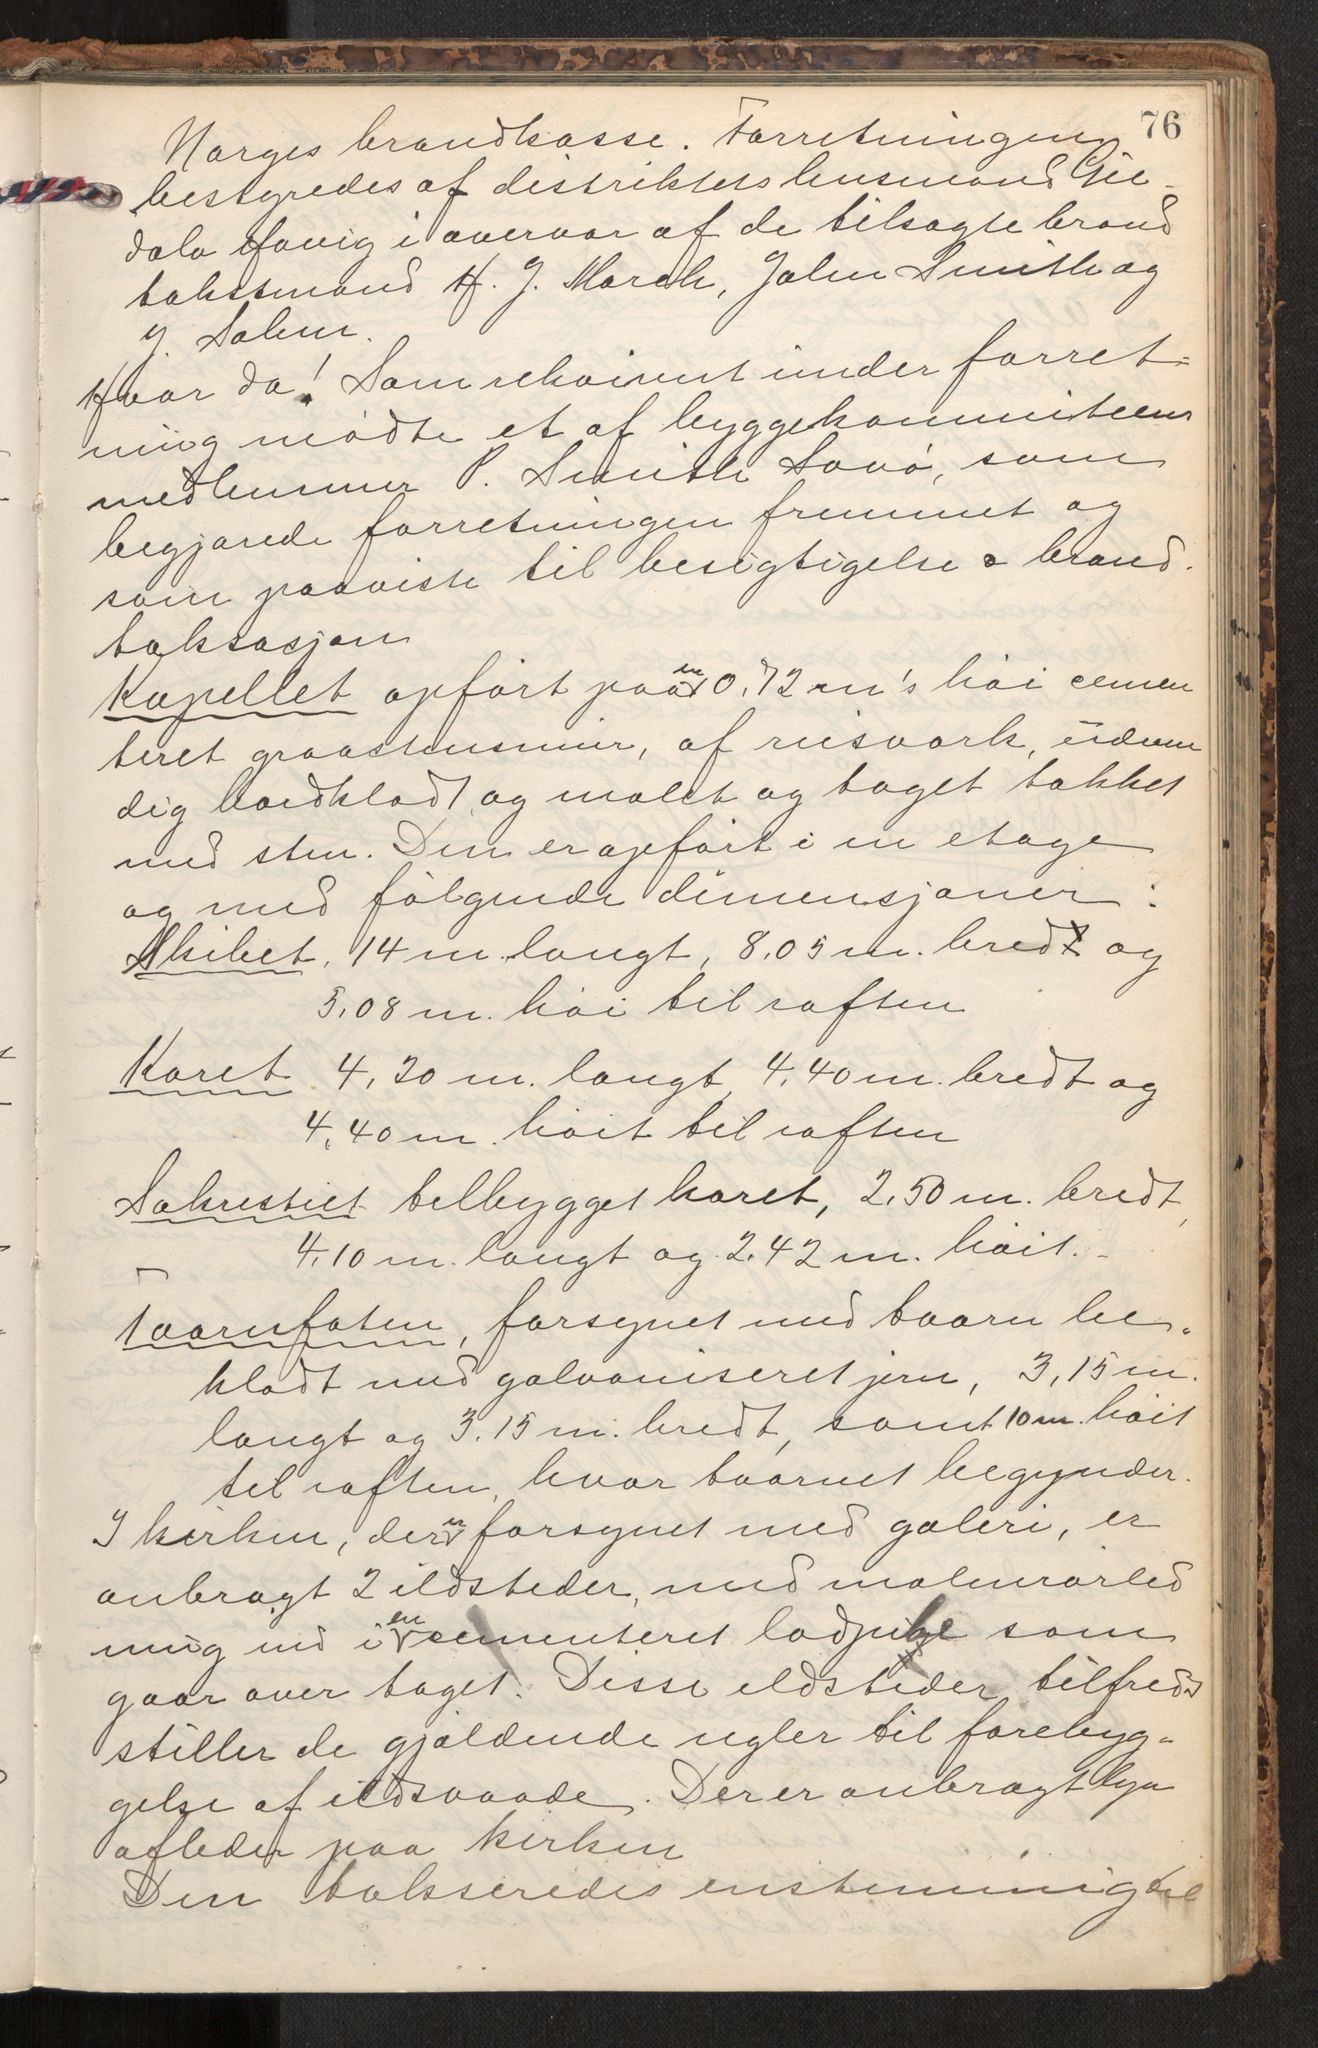 76
Norges brandkasse. Forretningen
bestyredes af distriktets lensmand
Havig i overvær af de tilsagte brand
takstmænd H. J. March, John Smith og
J. Salen.
Hvor da! Som rekvirent under forret=
ning mødte et af byggekommiteens
medlemmer P. Smith Savø, som
begjærede forretningen fremmet og
som paaviste til besigtigelse o brand.
taksasjon
Kapellet opført paa en 0.72 m's høi cemen
teret graastensmur, af reisværk, udven
dig bordklædt og malet og taget tækket
med sten. Den er opført i en etage
og med følgende dimensjoner:
Skibet, 14 m. langt, 8.05 m. bredt og
5.08 m. høi til raften
Koret 4,20 m. langt, 4,40 m. bredt og
4,40 m. høit til raften
Sakrestiet tilbygget koret, 2,50 m. bredt,
4,10 m. langt og 2,42 m. høit. -
Taarnfoten, forsynet med taarn be-
klædt med galvaniseret jern, 3,15 m.
langt og 3.15 m. bredt, samt 10 m. høit
til raften, hvor taarnet begynder.
I kirken, der er forsynet med galeri, er
anbragt 2 ildsteder, med malmrørled
ning ind i en cementeret lodpibe som
gaar over taget. Disse ildsteder tilfreds
stiller de gjældende regler til forebyg-
gelse af ildsvaade. Der er anbragt lyn
afleder paa kirken
Den takseredes enstemmig til